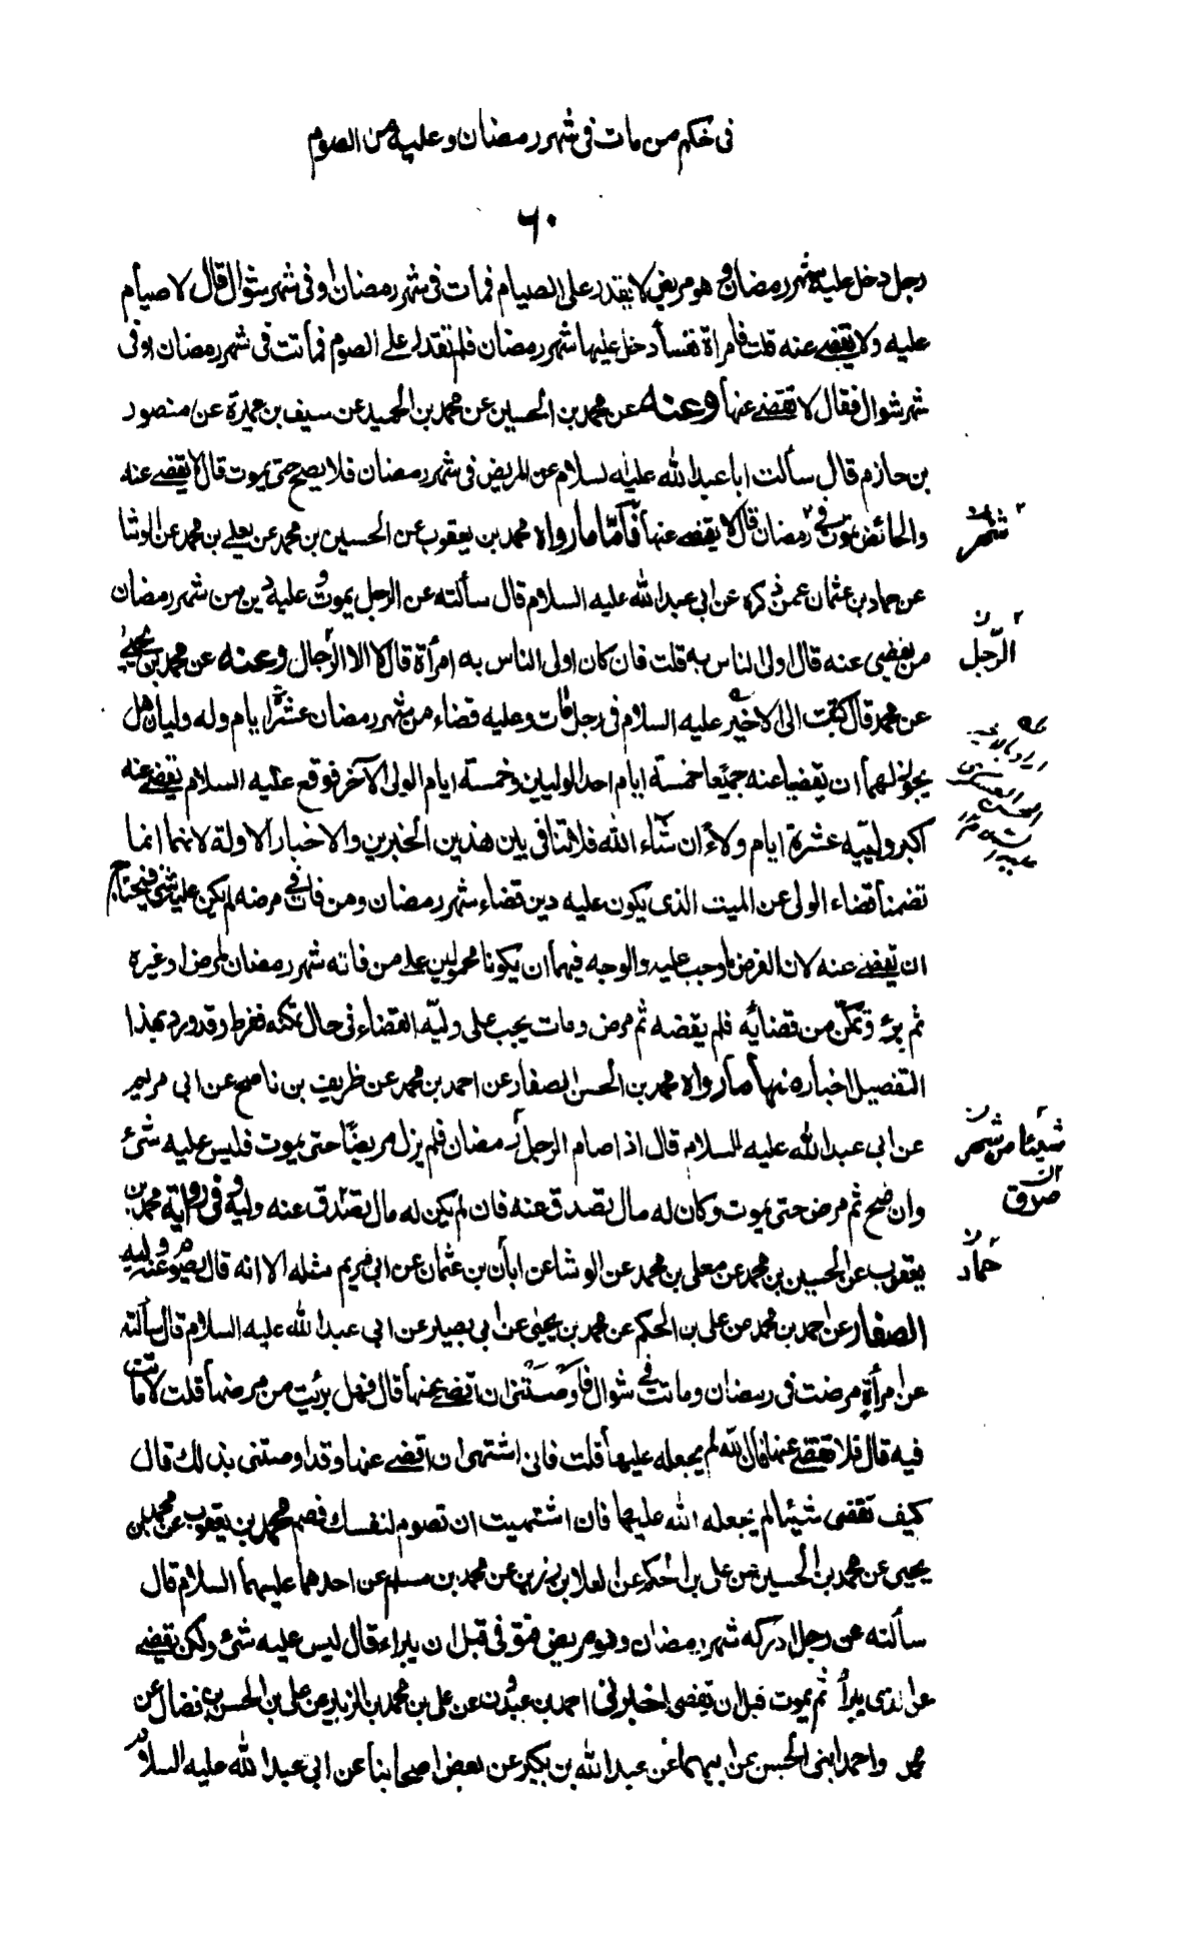 فی حکم من مات فی شهر رمضان و علیه من الصوم
٦٠
رجل دخل عليه شهر رمضان و هو مريض لا يقدر على الصيام فمات فى شهر رمضان او فى شهر شوال قال لا صيام
عليه ولا يقضى عنه قلت فامراة نفسأ دخل عليها شهر رمضان فلم تقدر على الصوم فماتت فى شهر رمضان او فى
شهر شوال فقال لا تقضى عنها وعنه عن محمد بن الحسين عن محمد بن الحميد عن سيف بن عميرة عن منصور
بن حازم قال سألت ابا عبد الله عليه السلام عن المريض فى شهر رمضان فلا يصح حتى يموت قال لا يقضى عنه
والحائض تموت فى رمضان قال لا يقضى عنها فأمّا ما رواه محمد بن يعقوب عن الحسين بن محمد عن يعلى بن محمد عن الوشا
شهر
عن حماد بن عثمان عمن ذكره عن ابى عبد الله عليه السلام قال سألته عن الرجل يموت و عليه دين من شهر رمضان
من يقضى عنه قال اولى الناس به قلت فان كان اولى الناس به امرأة قال لا الا الرجال وعنه عن محمد بن يحيى
الرّجل
عن محمد قال كتبت الى الاخير عليه السلام فى رجل مات وعليه قضاء من شهر رمضان عشرة ايام وله وليان هل
يجوز لهما ان يقضيا عنه جميعا خمسة ايام احد الوليين وخمسة ايام الولى الآخر فوقع عليه السلام يقضى عنه
اكبر ولييه عشرة ايام ولاءً ان شآء الله فلا تنافى بين هذين الخبرين والاخبار الاولة لانهما انما
تضمنا قضاء الولى عن الميت الذى يكون عليه دين قضاء شهر رمضان ومن فات فى مرضه لم يكن عليه شئ فيحتاج
ان يقضى عنه لان الفرض ما وجب عليه والوجه فيهما ان يكونا محمولين على من فاته شهر رمضان لمرض او غيره
ثم برء و تمكّن من قضائه فلم يقضه ثم مرض ومات يجب على وليّه القضاء فى حال تمكنه ففرط وقد ورد بهذا
التفصيل اخباره منها ما رواه محمد بن الحسن الصفار عن احمد بن محمد عن ظريف بن ناصح عن ابى مريم
عن ابى عبد الله عليه السلام قال اذا صام الرجل رمضان فلم يزل مريضًا حتى يموت فليس عليه شئ
شيئا من شهر
وان صح ثم مرض حتى يموت وكان له مال يصدق عنه فان لم يكن له مال تصدق عنه وليه و فى رواية محمد بن
صدق
يعقوب عن الحسين بن محمد عن معلى بن محمد عن الوشا عن ابان بن عثمان عن ابى مريم مثله الا انه قال يصوم عنه وليه
حمّاد
الصفار عن احمد بن محمد عن على بن الحكم عن محمد بن يحيى عن ابى بصير عن ابى عبد الله عليه السلام قال سألته
عن امرأة مرضت فى رمضان وماتت فى شوال فاوصتنى ان اقضى عنها قال فهل برئت من مرضها قلت لا ماتت
فيه قال فلا تقضى عنها فان الله لم يجعله عليها قلت فانى اشتهى ان اقضى عنها وقد اوصتنى بذلك قال
كيف تقضى شيئا لم يجعله الله عليها فان اشتهيت ان تصوم لنفسك فصم محمد بن يعقوب عن محمد بن
يحيى عن محمد بن الحسين عن على بن الحكم عن العلا بن رزين عن محمد بن مسلم عن احدهما عليهما السلام قال
سألته عن رجل ادركه شهر رمضان وهو مريض فتوفى قبل ان يبراء قال ليس عليه شئ ولكن يقضى
عن الذى يبرأ ثم يموت قبل ان يقضى اخبرنى احمد بن عبدون عن على بن محمد بن الزبير عن على بن الحسن بن فضال عن
محمد واحمد ابنى الحسن عن ابيهما عن عبد الله بن بكير عن بعض اصحابنا عن ابى عبد الله عليه السلام